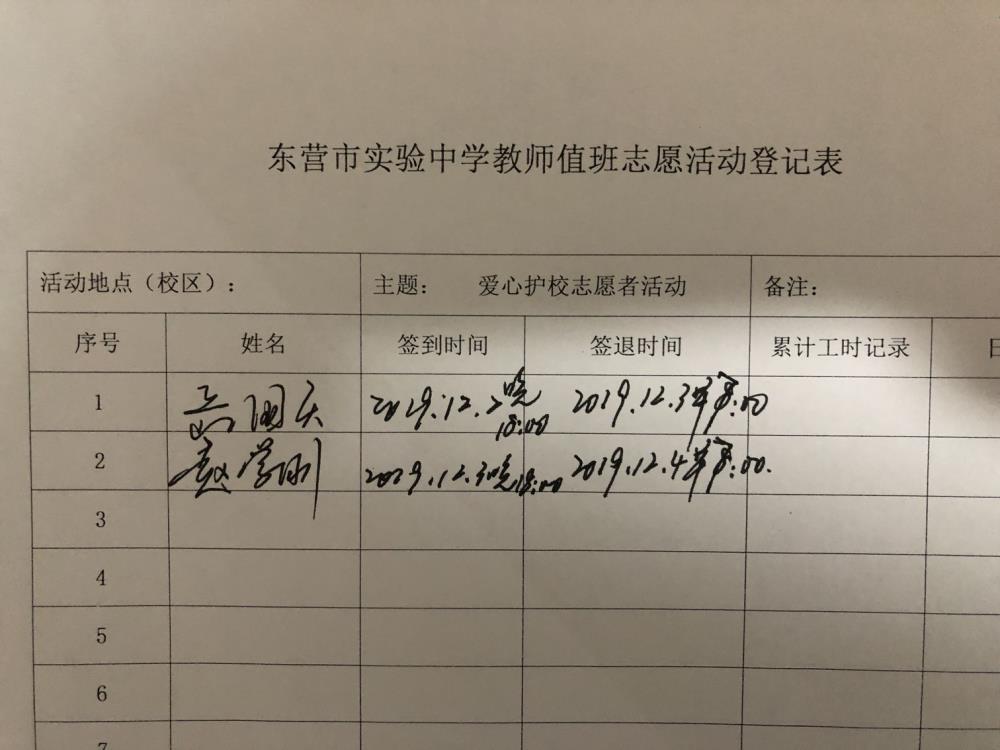 东营市实验中学教师值班志愿活动登记表
活动地点（校区）： 主题： 爱心护校志愿者活动 备注：
序号 姓名 签到时间 签退时间 累计工时记录
1 国庆 2019.12.2晚18:00 2019.12.3 8:00
2 2019.12.3晚18:00 2019.12.4 8:00.
3
4
5
6
7